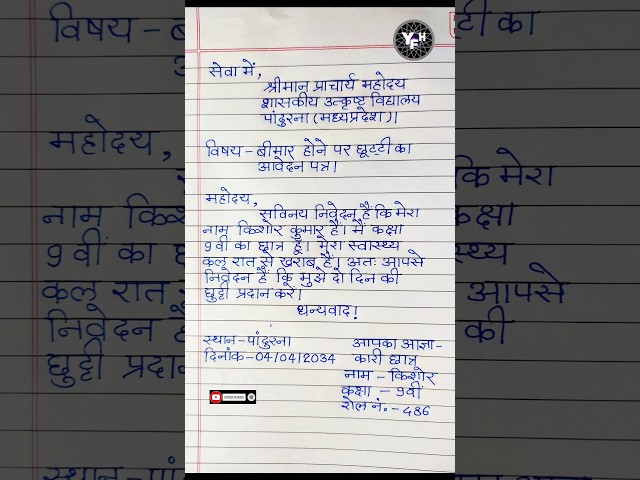 सेवा में,
श्रीमान प्राचार्य महोदय
शासकीय उत्कृष्ट विद्यालय
पांढुरना (मध्यप्रदेश)।
विषय - बीमार होने पर छूट्टी का
आवेदन पत्र।
महोदय,
सविनय निवेदन हैं कि मेरा
नाम किशोर कुमार हैं। मैं कक्षा
9वीं का छात्र हूँ। मेरा स्वास्थ्य
कल रात से खराब हैं। अतः आपसे
निवेदन हैं कि मुझे दो दिन की
छुट्टी प्रदान करें।
धन्यवाद!
स्थान - पांढुरना
दिनांक - 04/04/2034
आपका आज्ञा-
कारी छात्र
नाम - किशोर
कक्षा - 9वीं
रोल नं. - 486